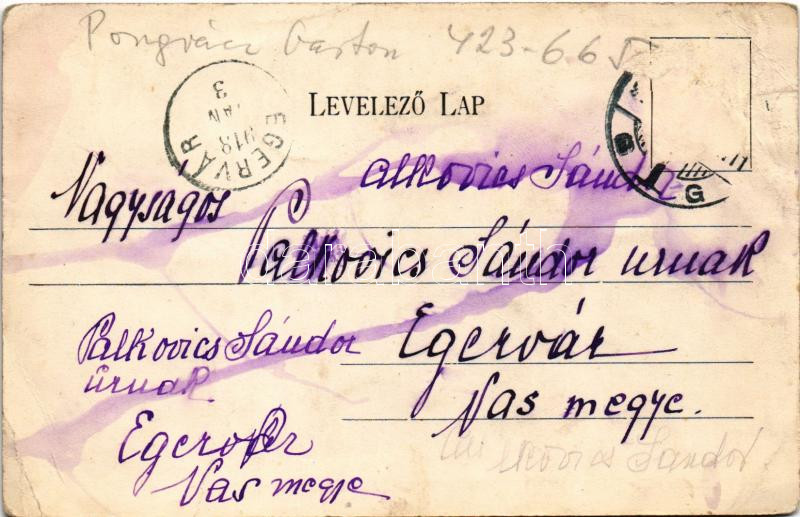 Pongrácz Gaston 423-665
EGERVÁR
918
JAN
3
LEVELEZŐ LAP
G
alkovics Sándor
Nagyságos
Palkovics Sándor urnak
darabanth
Palkovics Sándor
urnak
Egervár
Vas megye.
Vas megye
kovics Sándor